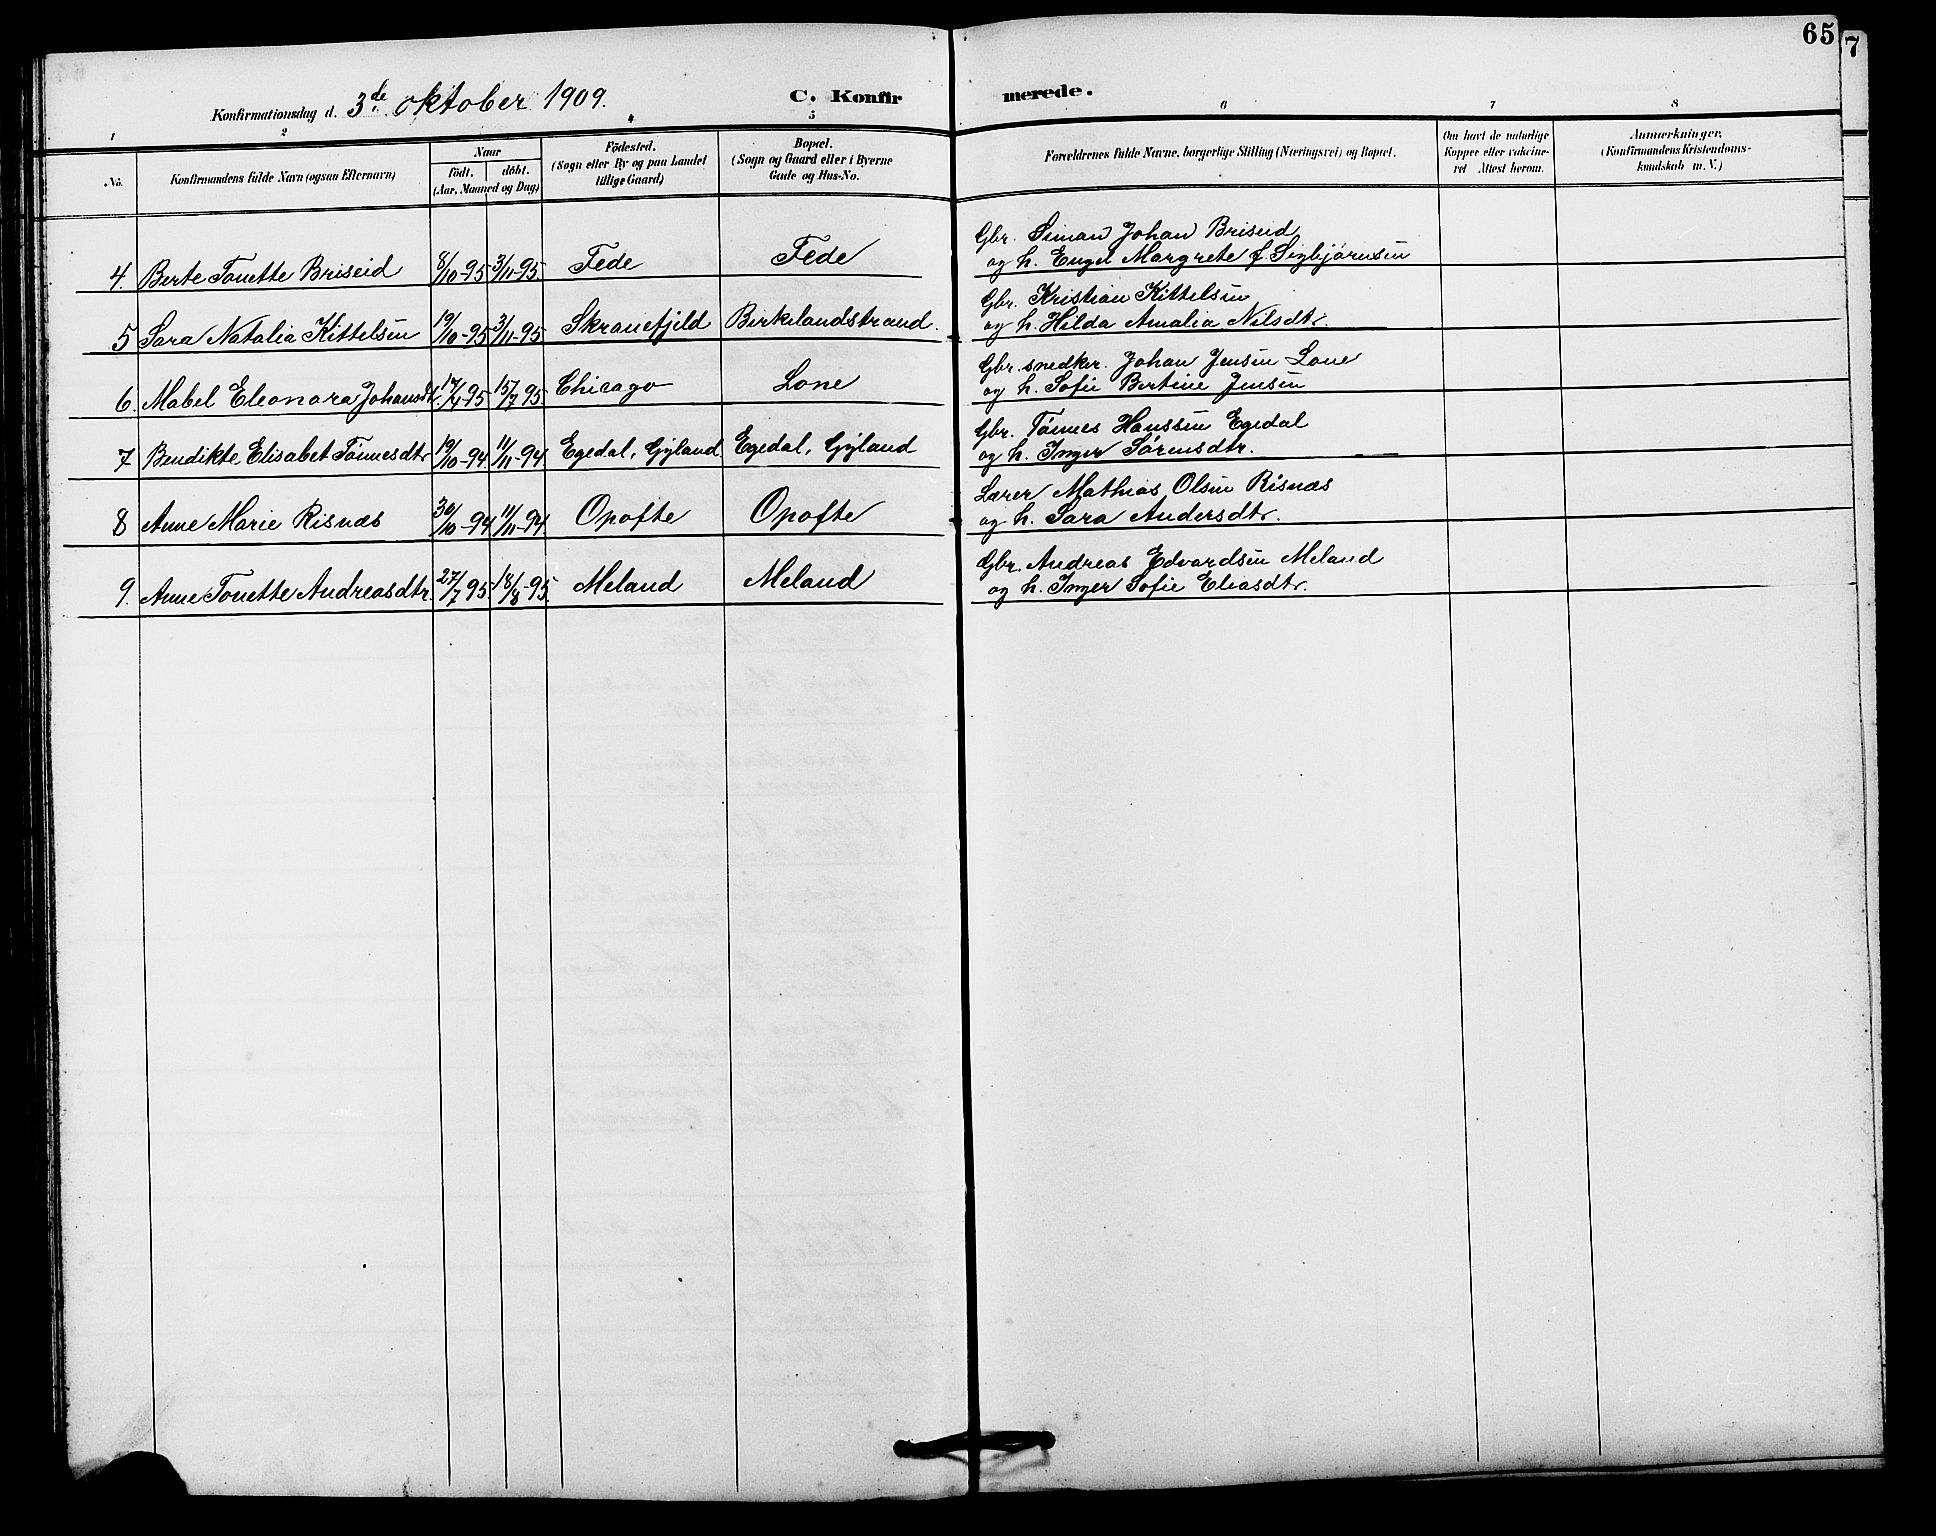 65
7
Konfirmationsdag d. 3de oktober 1909.
C. Konfirmerede.
1 2 4 5 6 7 8
No.
Konfirmandens fulde Navn (ogsaa Efternavn)
Naar
födt. döbt.
(Aar, Maaned og Dag)
Födested.
(Sogn eller By og paa Landet
tillige Gaard)
Bopæl.
(Sogn og Gaard eller i Byerne
Gade og Hus-No.
Forældrenes fulde Navne, borgerlige Stilling (Næringsvei) og Bopæl.
Om havt de naturlige
Kopper eller vakcine-
ret Attest herom.
Anmærkninger.
(Konfirmandens Kristendoms-
kundskab m. V.)
4. Berte Tonette Briseid 8/10-95 3/11-95 Fede Fede Gbr. Siman Johan Briseid
og h. Engel Margrete f Sigbjørnsen
5 Sara Natalia Kittelsen 19/10-95 3/11-95 Skranefjeld Birkelandstrand. Gbr. Kristian Kittelsen
og h. Hilda Amalia Nilsdtr.
6. Mabel Eleonora Johansdtr. 17/4-95 15/7 95 Chicago Lone Gbr. snedker. Johan Jensen Lone
og h. Sofie Bertine Jensen
7 Bendikte Elisabet Tönnesdtr 19/10-94 11/11-94 Egedal, Gyland Egedal, Gyland Gbr. Tönnes Hanssen Egedal
og h. Inger Sørensdtr.
8 Anne Marie Risnæs 30/10-94 11/11-94 Opofte Opofte Lærer Mathias Olsen Risnæs
og h. Sara Andersdtr.
9. Anne Tonette Andreasdtr. 27/7 95 18/8-95 Meland Meland Gbr. Andreas Edvardsen Meland
og h. Inger Sofie Eliasdtr.